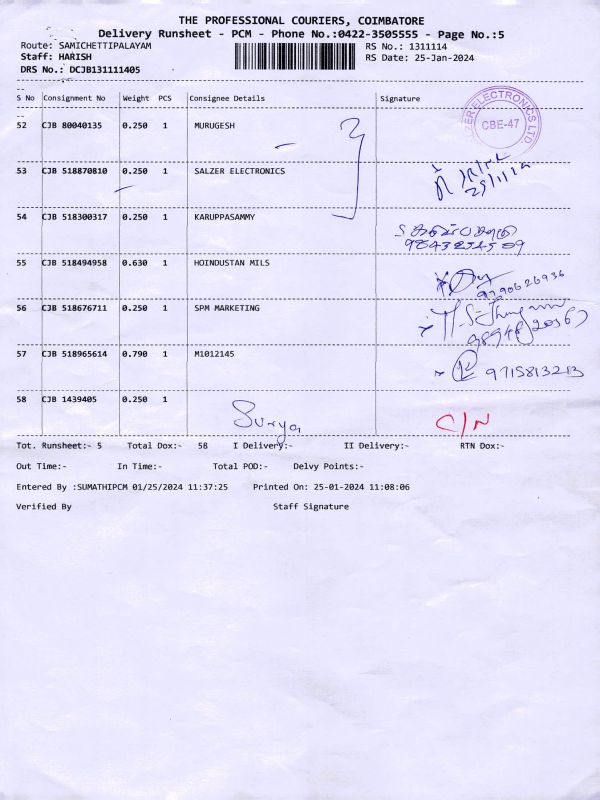 THE PROFESSIONAL COURIERS, COIMBATORE
Delivery Runsheet - PCM - Phone No.:0422-3505555 - Page No.:5
Route: SAMICHETTIPALAYAM RS No.: 1311114
Staff: HARISH RS Date: 25-Jan-2024
DRS No.: DCJB131111405
S No Consignment No Weight PCS Consignee Details Signature
52 CJB 80040135 0.250 1 MURUGESH
ELECTRONICS LTD.
CBE-47
53 CJB 518870810 0.250 1 SALZER ELECTRONICS
54 CJB 518300317 0.250 1 KARUPPASAMMY
55 CJB 518494958 0.630 1 HOINDUSTAN MILS
9790626936
56 CJB 518676711 0.250 1 SPM MARKETING
57 CJB 518965614 0.790 1 M1012145
9715813213
58 CJB 1439405 0.250 1 Surya C/N
Tot. Runsheet:- 5 Total Dox:- 58 I Delivery:- II Delivery:- RTN Dox:-
Out Time:- In Time:- Total POD:- Delvy Points:-
Entered By :SUMATHIPCM 01/25/2024 11:37:25 Printed On: 25-01-2024 11:08:06
Verified By Staff Signature